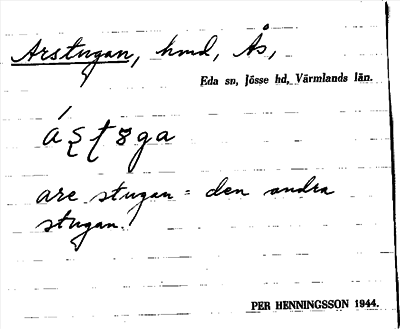 Arstugan, hmd, Ås,
Eda sn, Jösse hd, Värmlands län.
áʂʈøga
are stugan = den andra
stugan.
PER HENNINGSSON 1944.